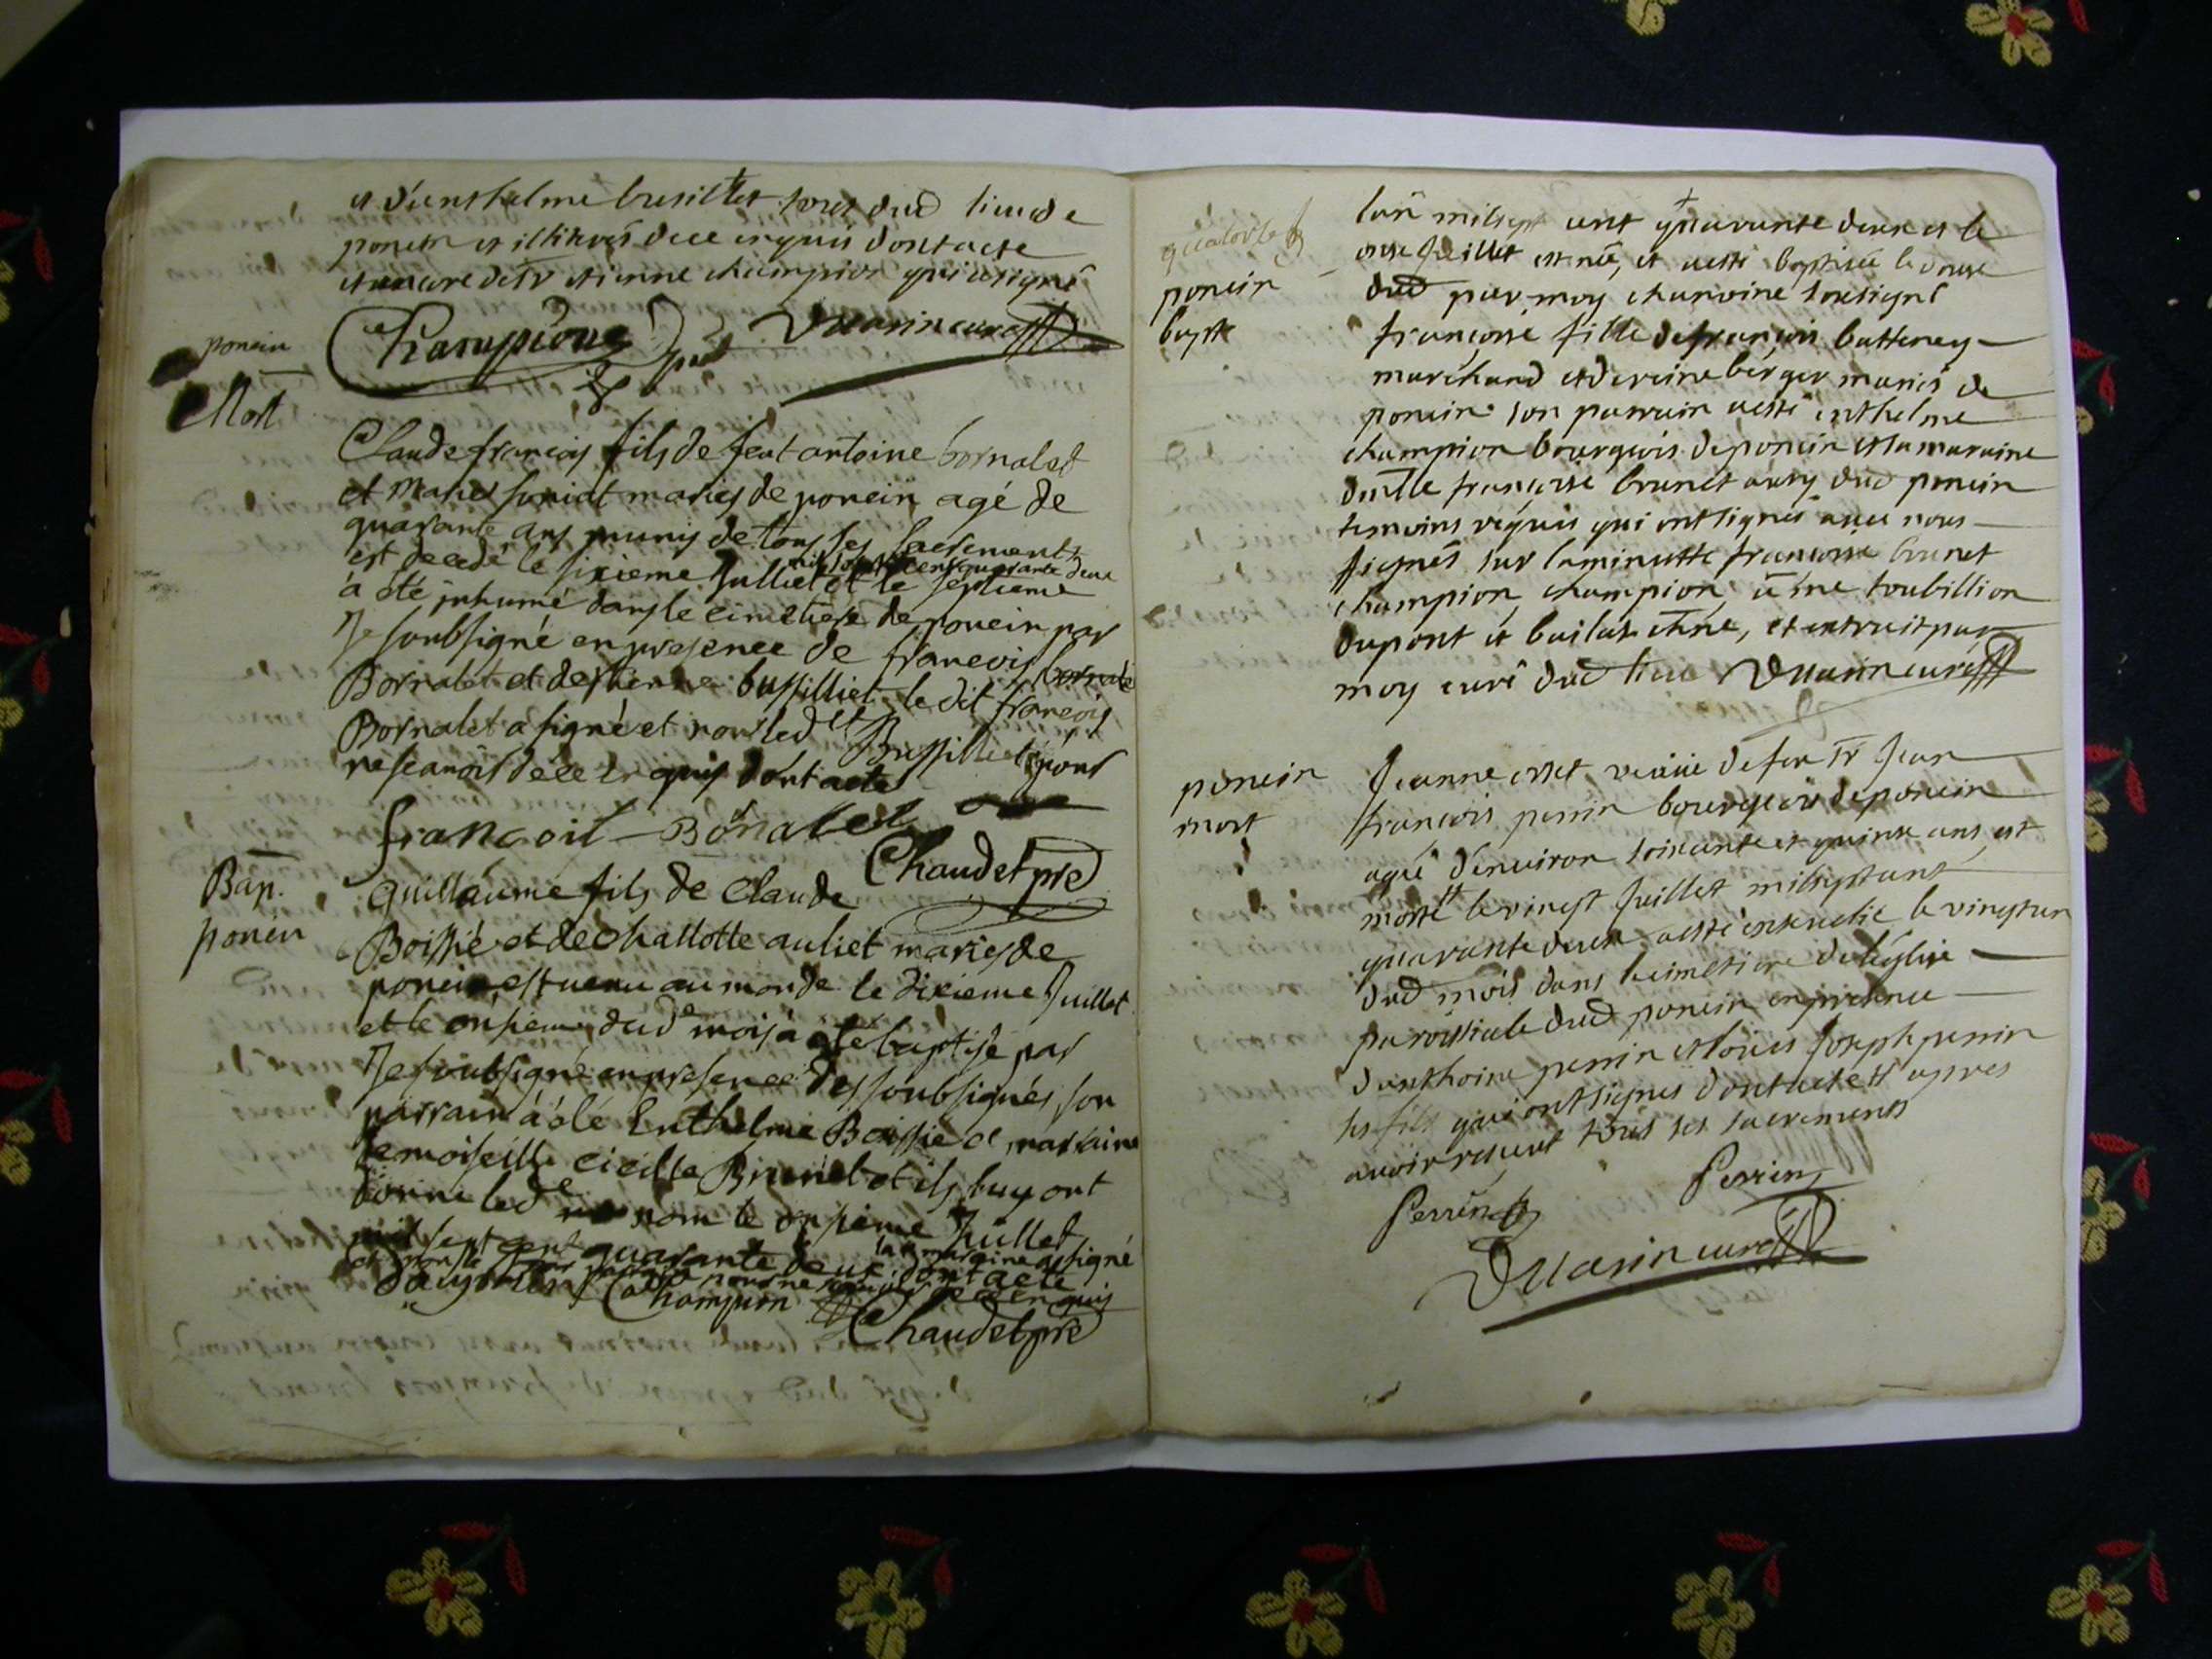 et d'enthelme brusillet tous dud lieu de
poncin et illiterés de ce enquis dont acte
et encore de sr etienne champion qui a signé
Champion
Duuarin curé
poncin
Mort
Claude françois fils de feut antoine bornalet
et Marie maries de poncin agé de
quarante ans munis de tous ses sacrements
est decedé le sixieme Julliet et le septieme
mil sept cent quarante deux
a été inhumé dans le cimetiere de poncin par
Je soubsigné en presence de francois
Bornalet et de bussilliet le dit francois
Bornalet a signé et non led Bussilliet pour
ne scavoir de ce enquis dont acte
francoit Bornalet
Chaudet pre
Bap.
poncin
Guillaume fils de Claude
Boissié et de Challotte auliet maries de
poncin est venu au monde le dixieme Juillet
et le onsieme dud mois a eté baptisé par
Je soubsigné en presence des soubsignés son
parrain a été Enthelme Boissie et marraine
demoiselle cicille Brunet et ils luy ont
donné led nom le onsieme Juillet
mil sept cent quarante deux dont acte
la marraine a signé
et non le parrain pour ne de ce enquis
Champion
Chaudet pre
poncin
bapt
lan mil sept cent quarante deux et le
onze Juillet est née, et a esté baptisée le douze
dud par moy chanoine soussigné
françoise fille de françois butteney
marchand et de reine berger mariés de
poncin son parrain a esté enthelme
champion bourgeois de poncin et la maraine
dlle françoise brunet aussy dud poncin
temoins requis qui ont signés avec nous
signés sur la minutte francoise brunet
champion, champion, toubillion
dupont et bailat chne, et extrait par
moy curé dud lieu Duuarin curé
poncin
mort
Jeanne veuve de feu sr Jean
francois perrin bourgeois de poncin
agée d'environ soixante et quinse ans est
morte le vingt Juillet mil sept cent
quarante deux a esté ensevelie le vingt un
dud mois dans le cimetiere de l'eglise
paroissiale dud poncin en presence
d'anthoine perrin et louis Joseph perrin
ses fils qui ont signés dont acte apres
avoir reçeut tous ses sacrements
Perrin
Perrin
Duuarin curé